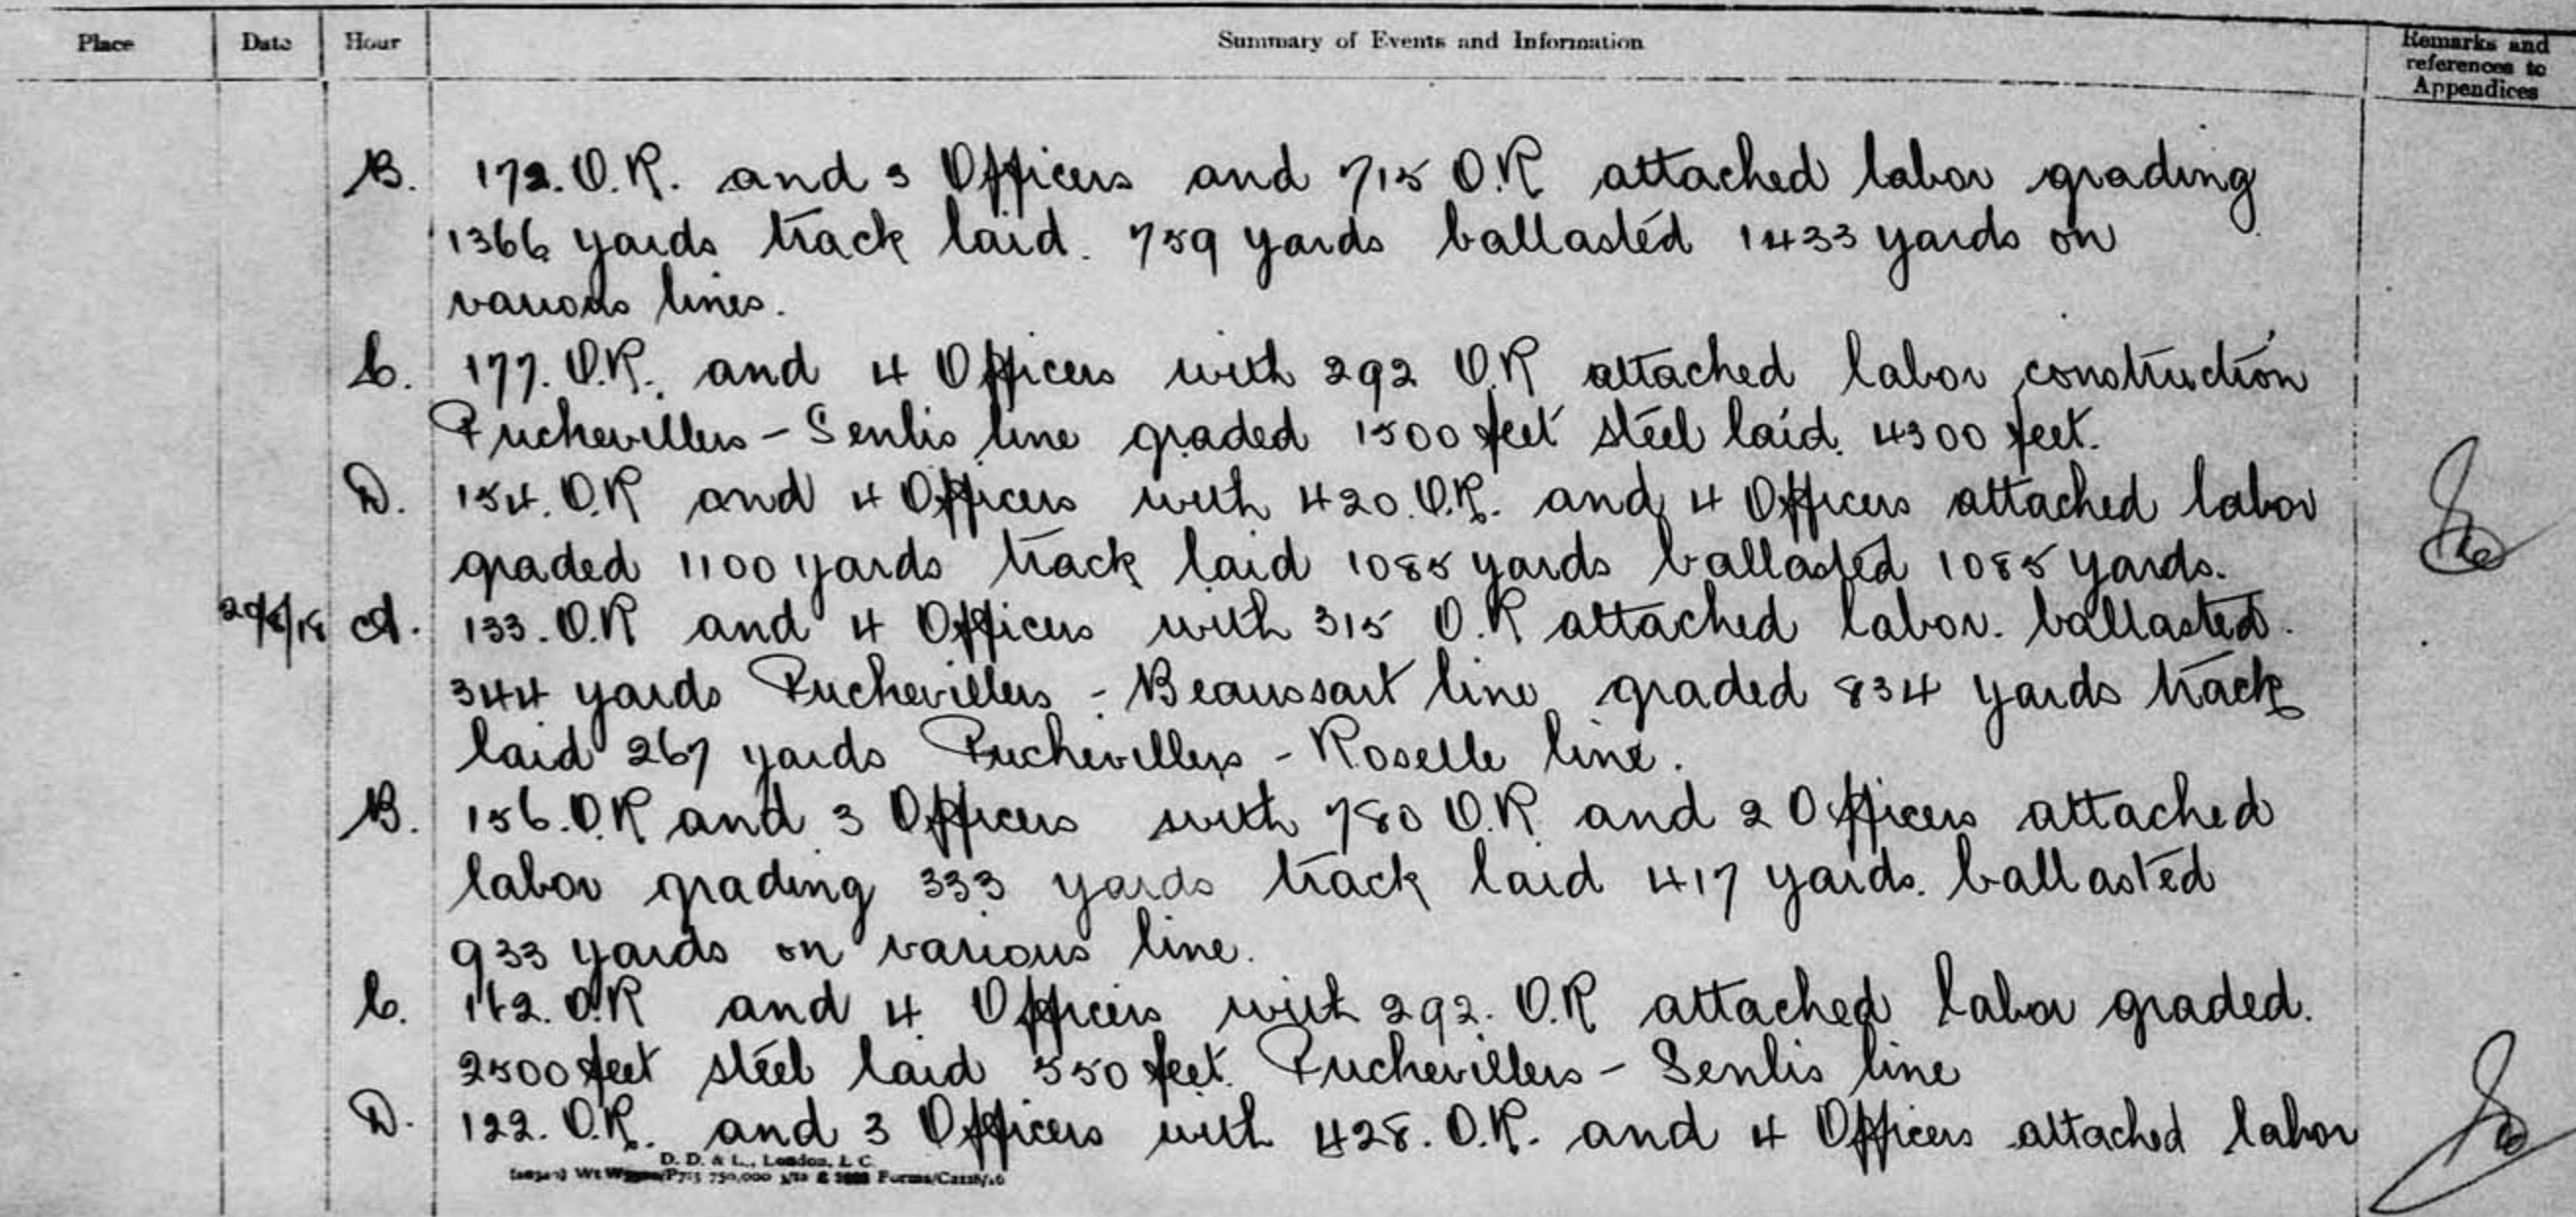 Place Date Hour Summary of Events and Information Remarks and references to Appendices
B. 172. O.R. and 3 Officers and 715 O.R attached labor grading
1366 yards track laid. 759 yards ballasted 1433 yards on
various lines.
C. 177. O.R. and 4 Officers with 292 O.R attached labor construction
Puchevillers - Senlis line graded 1500 feet steel laid. 4300 feet.
D. 154. O.R and 4 Officers with 420. O.R. and 4 Officers attached labor
graded 1100 yards track laid 1085 yards ballasted 1085 yards.
A. 133. O.R and 4 Officers with 315 O.R attached labor. ballasted.
344 yards Puchevillers - Beaussart line graded 834 yards track
laid 267 yards Puchevillers - Roselle line.
B. 156. O.R and 3 Officers with 780 O.R and 2 Officers attached
labor grading 333 yards track laid 417 yards. ballasted
933 yards on various line.
C. O.R and 4 Officers with 292. O.R attached labor graded.
2500 feet steel laid 550 feet. Puchevillers - Senlis line
D. 122. O.R. and 3 Officers with 428. O.R. and 4 Officers attached labor
D. D. & L., London, E.C.